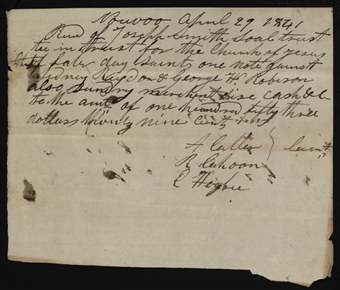 Nouvoo April 29 1841
Recd of Joseph Smith Soal trust
tee in trust for the Church of Jesus
Christ of Later day Saints, one note ganst
Sidney Rigdon & George W Robison
also Sundry merchent dise cash &c
to the amt of one hundred fifty three
dollars thirty nine Cents
A Cutler
R Cahoon
E Higbee